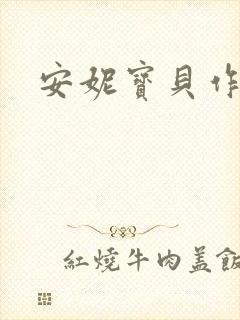 安妮寶貝作
紅燒牛肉盖飯